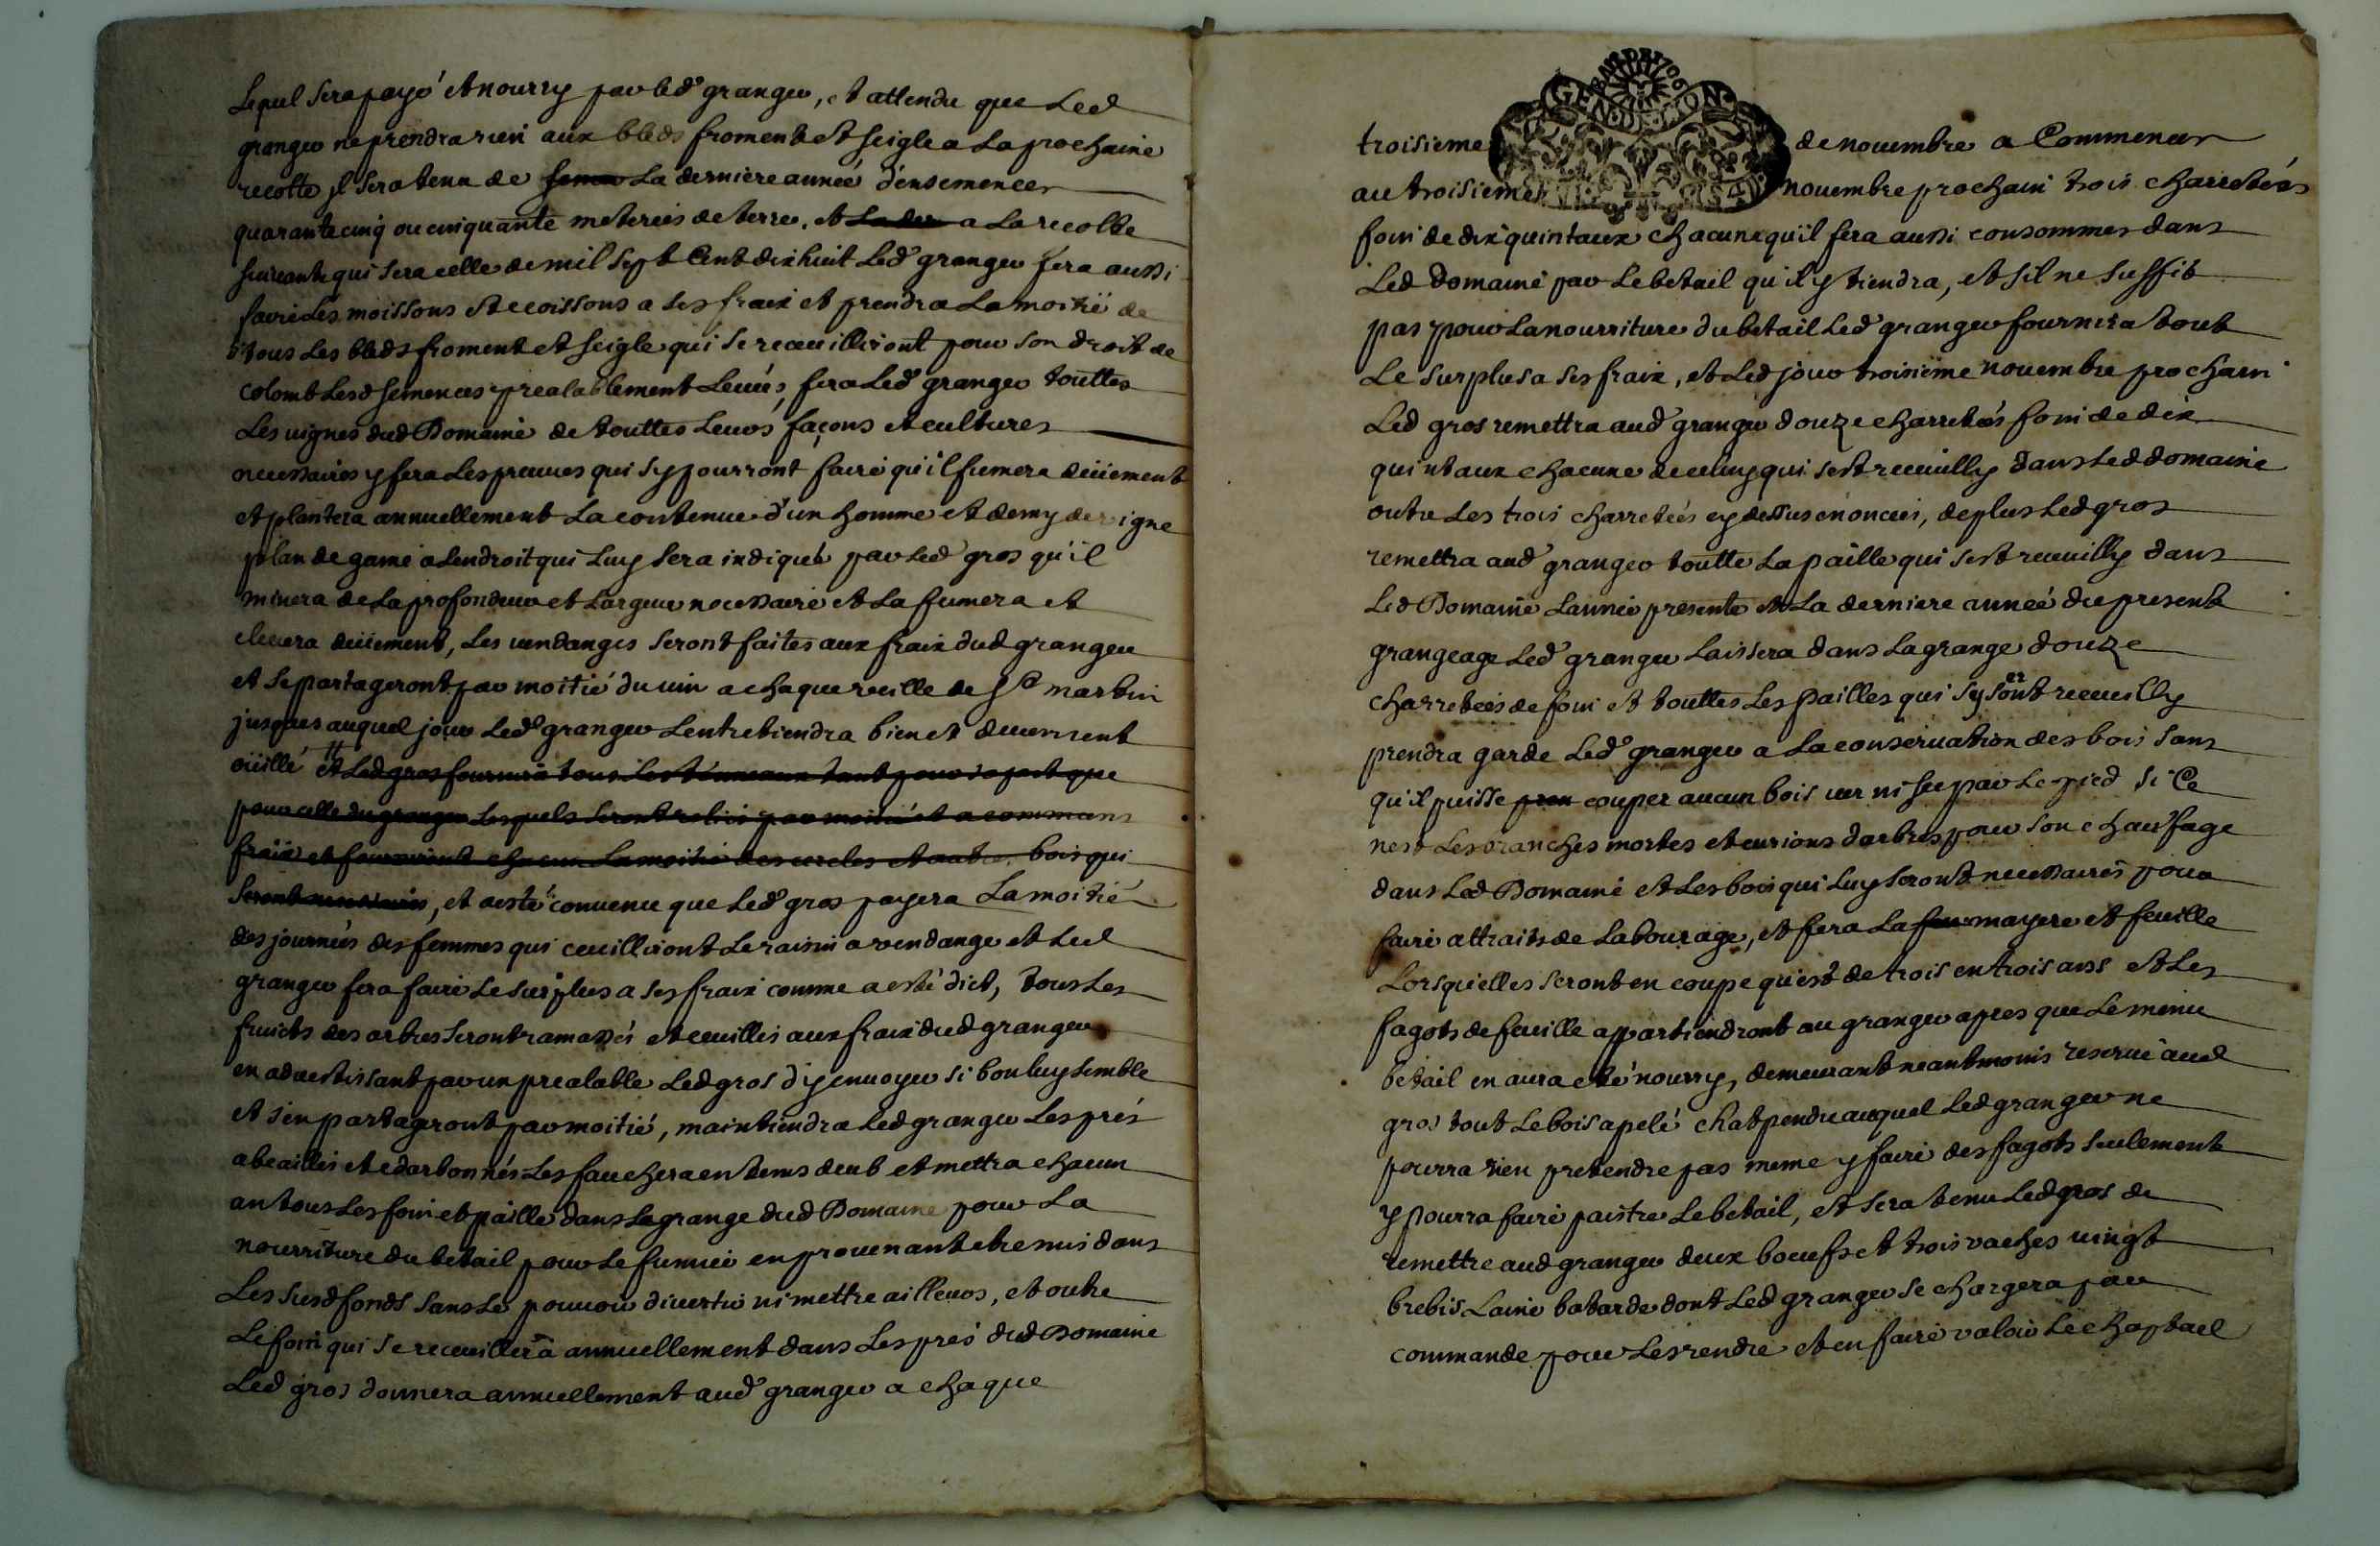 Lequel sera payé et nourry par led granger, et attendu que Led
granger ne prendra rien aux bleds froment et seigle a La prochaine
recolte jl sera tenu de La derniere année d'ensemencer
quarante cinq ou cinquante meterées de terre, et La der a La recolte
suivante qui sera celle de mil sept Cent dix huit Led granger fera aussi
faire Les moissons et ecoissons a ses fraix et prendra La moitié de
tous Les bleds froment et seigle qui se receuilliront pour son droit de
colomb Lesd semences prealablement Leuées, fera Led granger touttes
Les uignes dud Domaine de touttes Leurs façons et cultures
necessaires y fera Les preuues qui s'y pourront faire qu'il fumera düement
et plantera annuellement La contenue d'un homme et demy de vigne
plan de gamé a Lendroit qui Luy sera indiqué par Led gros qu'il
minera de La profondeur et Largeur necessaire et La fumera et
eleuera düement, Les uendanges seront faites aux fraix dud granger
et se partageront par moitié du uin a chaque veille de St martin
jusques auquel jour Led granger L'entretiendra bien et deuement
oüillé et Led gros fournira tous Les tonneaux tant pour sa part que
pour celle du granger Lesquels seront reliés par moitié et a communs
fraix et fourniront chacun La moitié des cercles et autre bois qui
seront necessaires, et a esté conuenu que Led gros payera La moitié
des journées des femmes qui ceuilliront Le raisin a vendange et Led
granger fera faire Le surplus a ses fraix comme a esté dict, tous Les
fruicts des arbres seront ramassés et ceuillis aux fraix dud granger
en aduertissant par un prealable Led gros d'y enuoyer si bon luy semble
et s'en partageront par moitié, maintiendra Led granger Les prés
abeaillés et edarbonnés Les fauchera en tems deub et mettra chacun
an tous Les foin et paille dans La grange dud Domaine pour La
nourriture du betail pour Le fumier en prouenant etre mis dans
Les susd fonds sans Le pouuoir diuertir ni mettre ailleurs, et outre
Le foin qui se receuillera annuellement dans Les prés dud Domaine
Led gros donnera annuellement aud granger a chaque
GEN DE LYON
troisieme de nouembre a Commencer
au troisieme nouembre prochain trois charretées
foin de dix quintaux chacune qu'il fera aussi consommer dans
Led Domaine par Le betail qu'il y tiendra, et s'il ne suffit
pas pour La nourriture du betail Led granger fournira tout
Le surplus a ses fraix, et Led jour troisieme nouembre prochain
Led gros remettra aud granger douze charretées foin de dix
quintaux chacune de celuy qui s'est receuilly dans Led domaine
outre Les trois charretées cy dessus enoncées, de plus Led gros
remettra aud granger toutte La paille qui s'est receuilly dans
Led Domaine L'année presente et La derniere année du present
grangeage Led granger Laissera dans La grange douze
charretées de foin et touttes Les pailles qui s'y seront receuilly
prendra garde Led granger a La conseruation des bois sans
qu'il puisse pren couper aucun bois uer ni sec par Le pied si Ce
n'est Les branches mortes et eurions d'arbres pour son chaufage
dans Led Domaine et Les bois qui Luy seront necessaires pour
faire attraits de Labourage, et fera La mayere et feuille
Lorsqu'elles seront en coupe qu'est de trois en trois ans et Les
fagots de feuille appartiendront au granger apres que Le menu
betail en aura eté nourry, demeurant neantmoins reserué aud
gros tout Le bois apelé chat pendu auquel Led granger ne
pourra rien pretendre pas meme y faire des fagots seulement
y pourra faire paistre Le betail, et sera tenu Led gros de
remettre aud granger deux boeufs et trois vaches uingt
brebis Laine batarde dont Led granger se chargera par
commande pour Les rendre et en faire valoir Le chaptael